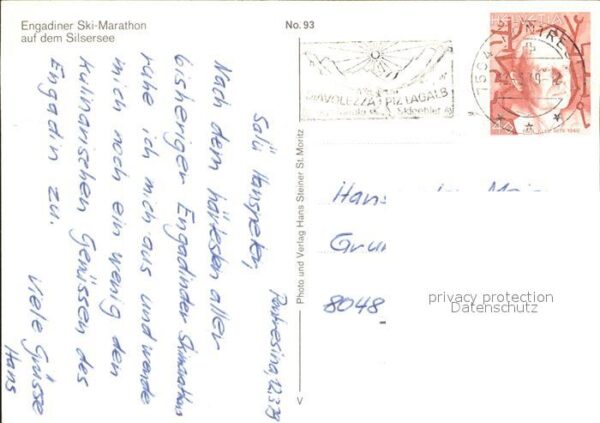 Engadiner Ski-Marathon
auf dem Silsersee
No. 93
HELVETIA
DIAVOLEZZA / PIZ LAGALB
Pontresina, 12.3.79
Salü Hanspeter,
Nach dem härtesten aller
bisherigen Engadinder Skimarathons
ruhe ich mich aus und wende
mich noch ein wenig den
kulinarischen Genüssen des
Engadin zu.
Viele Grüsse
Hans
Photo und Verlag Hans Steiner St. Moritz
V
Hans
8048
privacy protection
Datenschutz